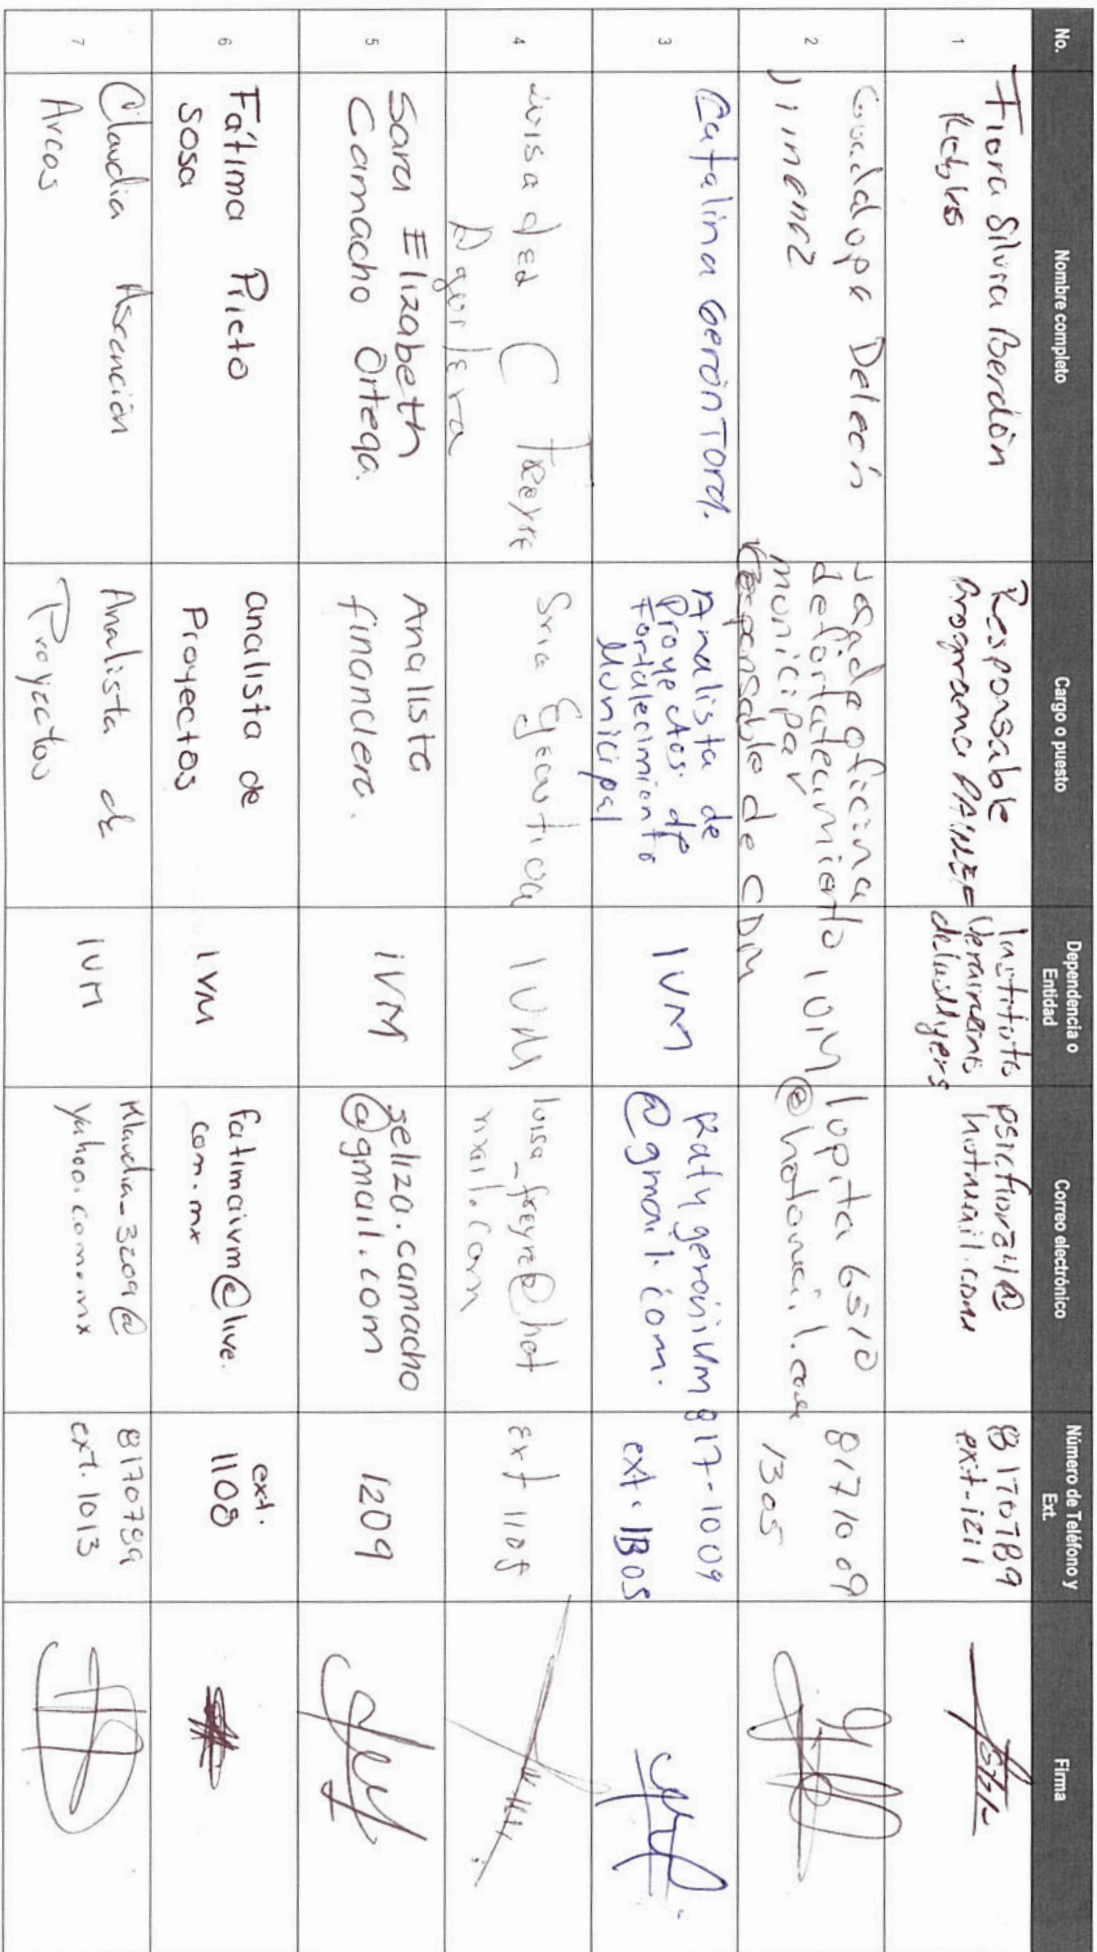 No. Nombre completo Cargo o puesto Dependencia o Entidad Correo electrónico Número de Teléfono y Ext. Firma
1
Fiora Silvia Berdón
Responsable
Programa PAIMEF
Instituto
Veracruzano
de las Mujeres
psicfiora24@
hotmail.com
8170789
ext-1211
2
Guadalupe Deleón
Jimenez
Jefa de oficina
de fortalecimiento
municipal
Responsable de CDM
IVM
lupita6510
@hotmail.com
8171009
1305
3
Catalina Gerón Toral.
Analista de
Proyectos de
Fortalecimiento
Municipal
IVM
Katygeronivm
@gmail.com.
817-1009
ext. 1305
4
Luisa del C Freyre
Aguilera
Sria Ejecutiva
IVM
luisa_freyre@hot
mail.com
ext 1108
5
Sara Elizabeth
Camacho Ortega.
Analista
financiera.
IVM
seliza.camacho
@gmail.com
1209
6
Fátima Prieto
Sosa
analista de
Proyectos
IVM
fatimaivm@live.
com.mx
ext.
1108
7
Claudia Ascención
Arcos
Analista de
Proyectos
IVM
Klaudia_3209@
yahoo.com.mx
8170789
ext. 1013